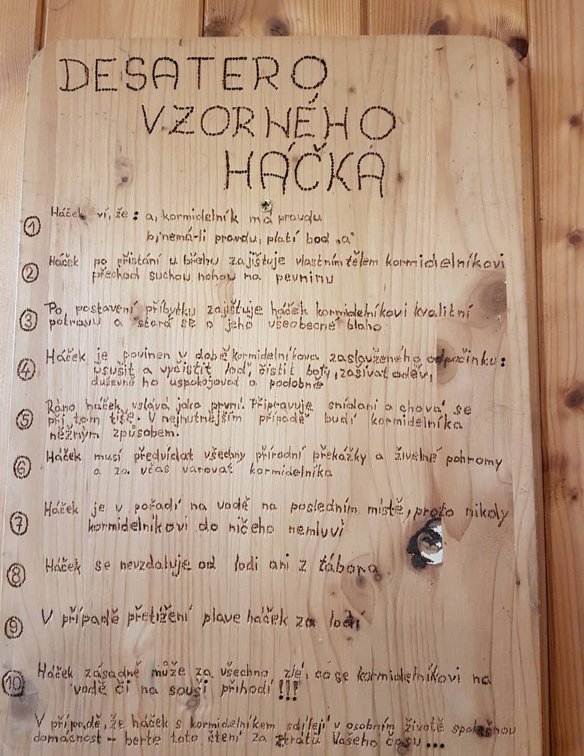 DESATERO
VZORNÉHO
HÁČKA
① Háček ví, že: a, kormidelník má pravdu
b, nemá-li pravdu, platí bod „a“
② Háček po přistání u břehu zajištuje vlastním tělem kormidelníkovi
přechod suchou nohou na pevninu
③ Po postavení příbytku zajištuje háček kormidelníkovi kvalitní
potravu a stará se o jeho všeobecné blaho
④ Háček je povinen v době kormidelníkova zaslouženého odpočinku:
usušit a vyčistit loď, čistit boty, zašívat oděv,
duševně ho uspokojovat a podobně
⑤ Ráno háček vstává jako první. Připravuje snídani a chová se
při tom tiše. V nejnutnějším případě budí kormidelníka
něžným způsobem.
⑥ Háček musí předvídat všechny přírodní překážky a živelné pohromy
a za včas varovat kormidelníka
⑦ Háček je v pořadí na vodě na posledním místě, proto nikoly
kormidelníkovi do ničeho nemluví
⑧ Háček se nevzdaluje od lodi ani z tábora
⑨ V případě přetížení plave háček za lodí
⑩ Háček zásadně může za všechno zlé, co se kormidelníkovi na
vodě či na souši přihodí!!!
V případě, že háček s kormidelníkem sdílejí v osobním životě společnou
domácnost - berte toto čtení za ztrátu Vašeho času...